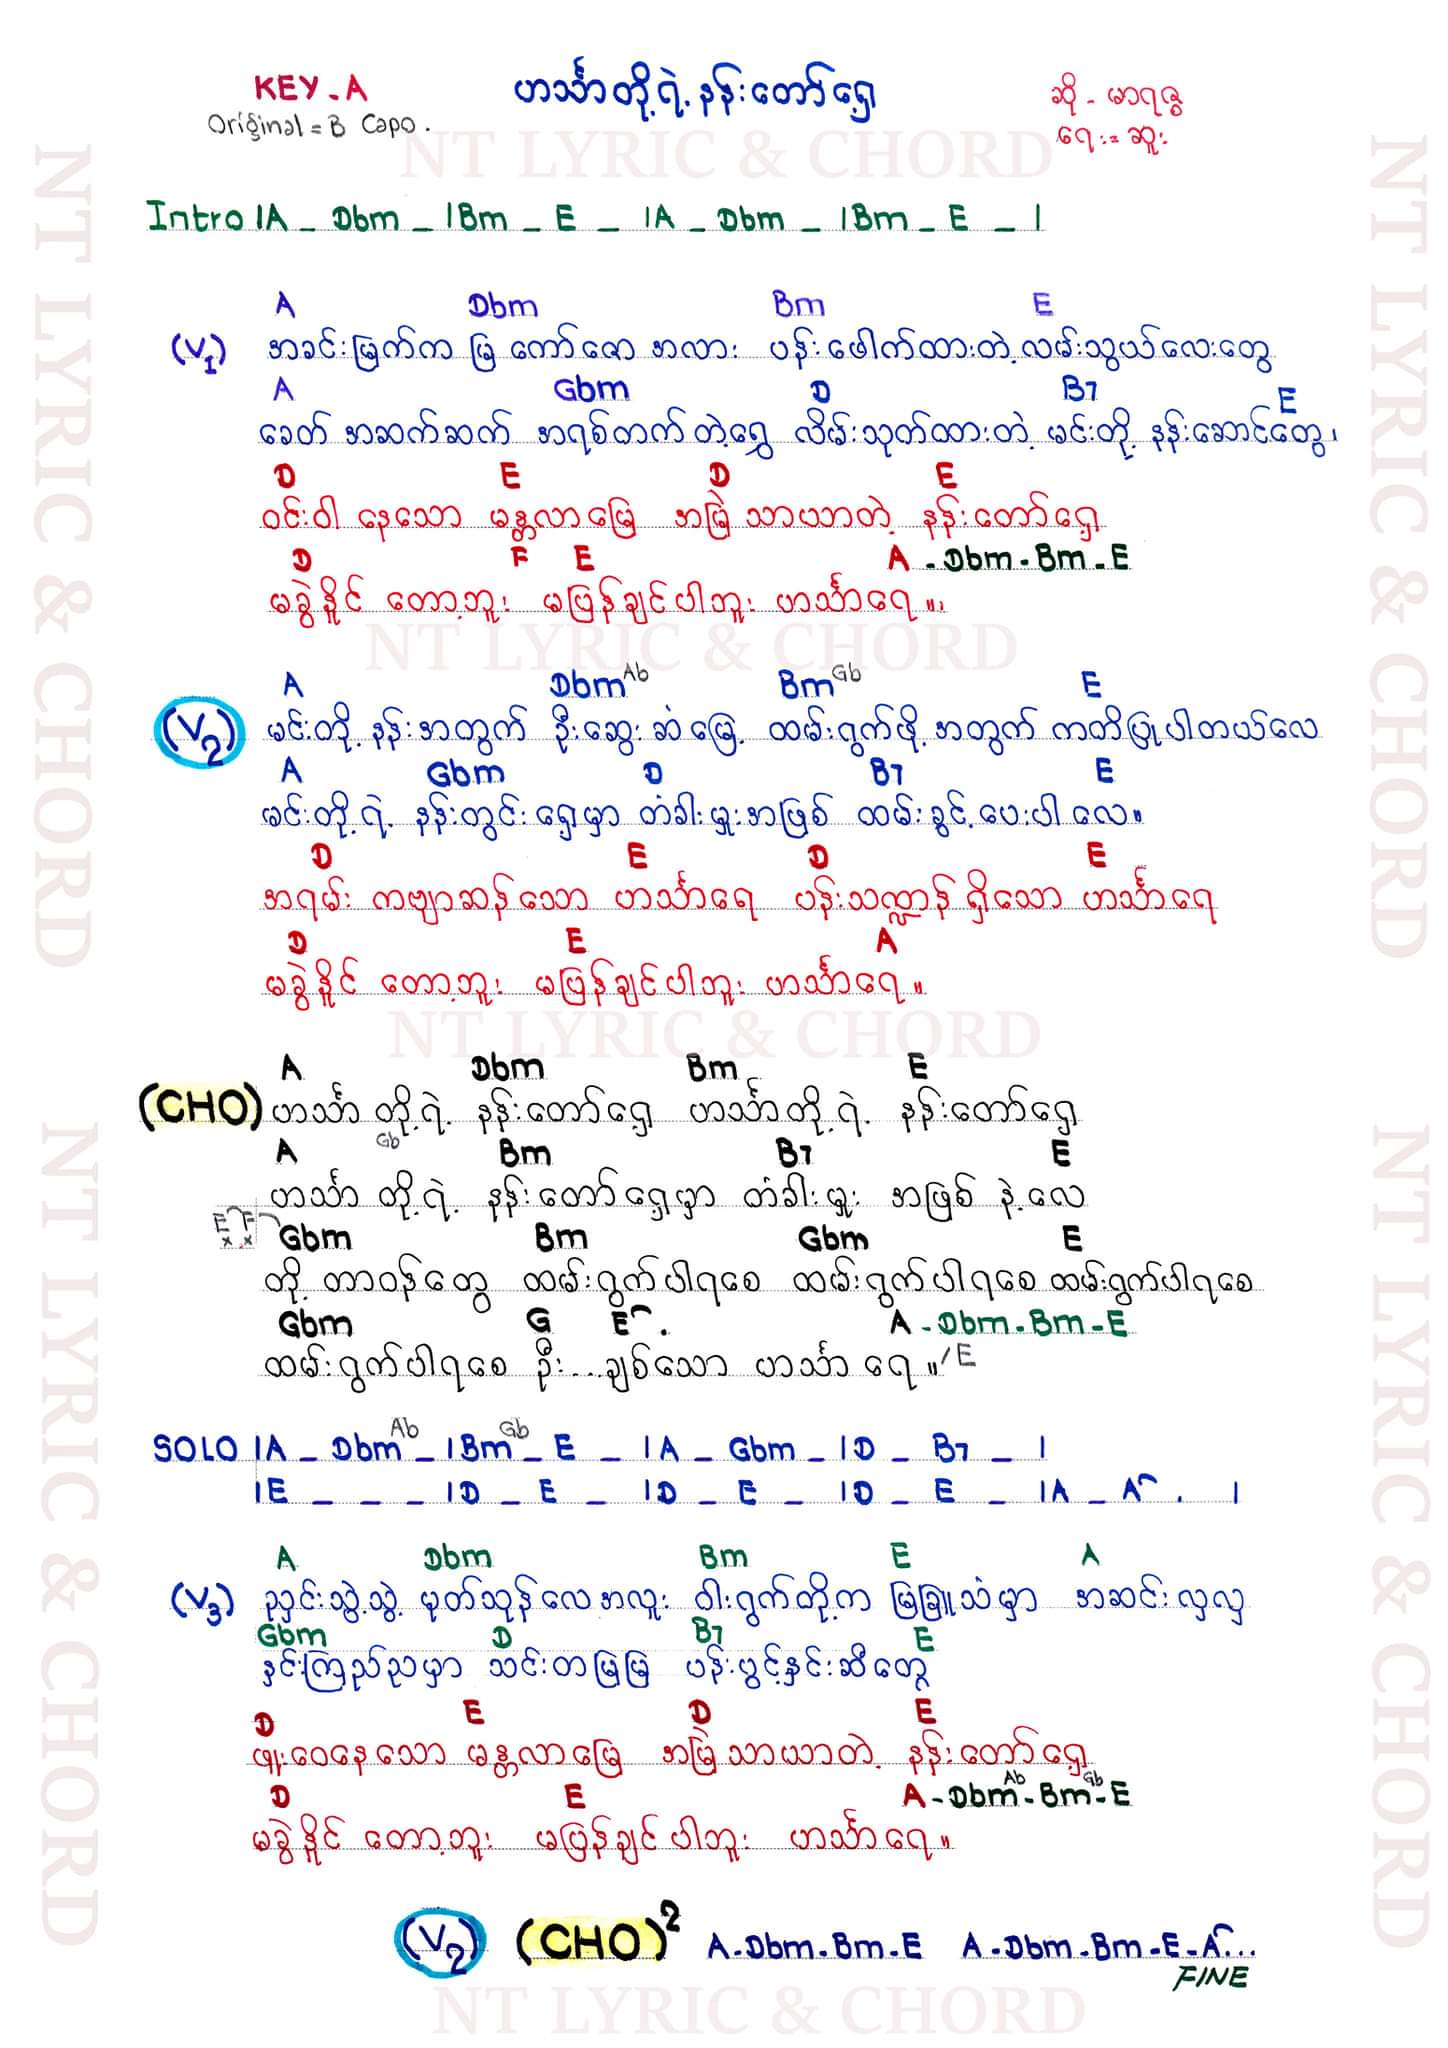 KEY - A
ဟင်္သာတို့ရဲ့ နန်းတော်ရှေ့
ဆို - မာရဇ္ဇ
Original = B Capo.
ရေး = ဆူး
NT LYRIC & CHORD
Intro |A _ Dbm _ |Bm _ E _ |A _ Dbm _ |Bm _ E _ |
A Dbm Bm E
(V1) အခင်းမြက်က မြ ကော်ဇော အလား ပန်းဖေါက်ထားတဲ့ လမ်းသွယ်လေးတွေ
A Gbm D B7 E
ခေတ် အဆက်ဆက် အရစ်တက်တဲ့ရွှေ လိမ်းသုတ်ထားတဲ့ မင်းတို့ နန်းဆောင်တွေ၊
D E D E
ဝင်းဝါ နေသော မန္တလာမြေ အမြဲသာယာတဲ့ နန်းတော်ရှေ့
D F E A - Dbm - Bm - E
မခွဲနိုင် တော့ဘူး မပြန်ချင်ပါဘူး ဟင်္သာရေ ။၊
NT LYRIC & CHORD
A Dbm Ab Bm Gb E
(V2) မင်းတို့ နန်းအတွက် ဦးဆွေး ဆံမြေ့ ထမ်းရွက်ဖို့ အတွက် ကတိပြုပါတယ်လေ
A Gbm D B7 E
မင်းတို့ ရဲ့ နန်းတွင်းရှေ့မှာ တံခါးမှူးအဖြစ် ထမ်းခွင့်ပေးပါ လေ။
D E D E
အရမ်း ကဗျာဆန်သော ဟင်္သာရေ ပန်းသဏ္ဍာန် ရှိသော ဟင်္သာရေ
D E A
မခွဲနိုင် တော့ဘူး မပြန်ချင်ပါဘူး ဟင်္သာရေ။
NT LYRIC & CHORD
A Dbm Bm E
(CHO) ဟင်္သာ တို့ရဲ့ နန်းတော်ရှေ့ ဟင်္သာတို့ ရဲ့ နန်းတော်ရှေ့
A Gb Bm B7 E
ဟင်္သာ တို့ရဲ့ နန်းတော်ရှေ့မှာ တံခါးမှူး အဖြစ် နဲ့လေ
E F Gbm Bm Gbm E
တို့ တာဝန်တွေ ထမ်းရွက်ပါရစေ ထမ်းရွက်ပါရစေ ထမ်းရွက်ပါရစေ
Gbm G E . A - Dbm - Bm - E
ထမ်းရွက်ပါရစေ ဦး...ချစ်သော ဟင်္သာ ရေ ။ / E
SOLO |A _ Dbm Ab _ |Bm Gb _ E _ |A _ Gbm _ |D _ B7 _ |
|E _ _ _ |D _ E _ |D _ E _ |D _ E _ |A _ A . |
A Dbm Bm E A
(V3) ညှင်းသွဲ့သွဲ့ မုတ်သုန်လေအလူး ဝါးရွက်တို့က မြခြူသံမှာ အဆင်းလှလှ
Gbm D B7 E
နှင်းကြည်ညမှာ သင်းတမြမြ ပန်းပွင့်နှင်းဆီတွေ
D E D E
ဖူးဝေနေသော မန္တလာမြေ အမြဲသာယာတဲ့ နန်းတော်ရှေ့
D E A - Dbm Ab - Bm Gb - E
မခွဲနိုင် တော့ဘူး မပြန်ချင်ပါဘူး ဟင်္သာရေ။
(V2) (CHO)2 A - Dbm - Bm - E A - Dbm - Bm - E - A...
FINE
NT LYRIC & CHORD
NT LYRIC & CHORD
NT LYRIC & CHORD
NT LYRIC & CHORD
NT LYRIC & CHORD